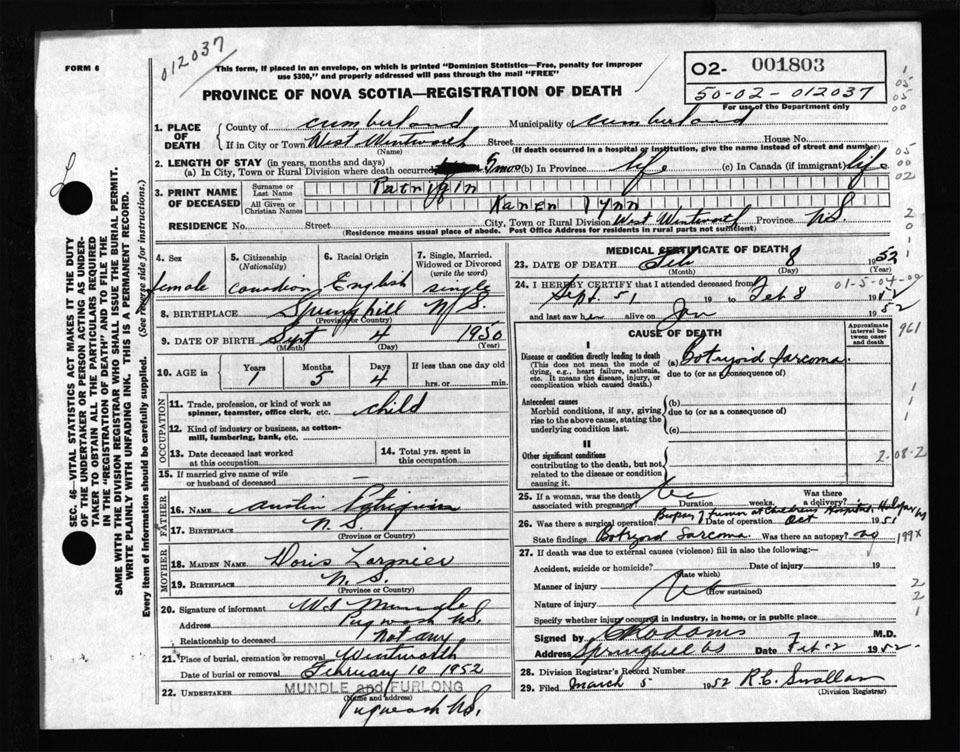 FORM 6
012037
This form, if placed in an envelope, on which is printed "Dominion Statistics—Free, penalty for improper
use $300," and properly addressed will pass through the mail "FREE"
O2- 001803
50-02-012037
For use of the Department only
PROVINCE OF NOVA SCOTIA—REGISTRATION OF DEATH
1. PLACE OF DEATH
County of Cumberland Municipality of Cumberland
If in City or Town West Wentworth Street House No.
(Name) (If death occurred in a hospital or institution, give the name instead of street and number)
2. LENGTH OF STAY (in years, months and days)
(a) In City, Town or Rural Division where death occurred 5 mos (b) In Province life (c) In Canada (if immigrant) life
3. PRINT NAME OF DECEASED
Surname or Last Name Patriquin
All Given or Christian Names Karen Lynn
RESIDENCE No. Street City, Town or Rural Division West Wentworth Province N.S.
(Residence means usual place of abode. Post Office Address for residents in rural parts not sufficient)
4. Sex female
5. Citizenship (Nationality) Canadian
6. Racial Origin English
7. Single, Married, Widowed or Divorced (write the word) single
8. BIRTHPLACE Springhill N.S.
(Province or Country)
9. DATE OF BIRTH Sept 4 1950
(Month) (Day) (Year)
10. AGE in Years Months Days If less than one day old
1 5 4 hrs. or min.
OCCUPATION
11. Trade, profession, or kind of work as
spinner, teamster, office clerk, etc. child
12. Kind of industry or business, as cotton-
mill, lumbering, bank, etc.
13. Date deceased last worked
at this occupation
14. Total yrs. spent in
this occupation
15. If married give name of wife
or husband of deceased —
FATHER
16. NAME Austin Patriquin
17. BIRTHPLACE N.S.
(Province or Country)
MOTHER
18. MAIDEN NAME Doris
19. BIRTHPLACE N.S.
(Province or Country)
20. Signature of informant Mundle
Address Pugwash N.S.
Relationship to deceased not any
21. Place of burial, cremation or removal Wentworth
Date of burial or removal February 10 1952
22. UNDERTAKER MUNDLE and FURLONG
(Name and address)
Pugwash N.S.
MEDICAL CERTIFICATE OF DEATH
23. DATE OF DEATH Feb 8 1952
(Month) (Day) (Year)
24. I HEREBY CERTIFY that I attended deceased from
Sept. 51 19 to Feb 8 19
and last saw her alive on Jan 1952
CAUSE OF DEATH
Approximate interval between onset and death
I
Disease or condition directly leading to death
(This does not mean the mode of
dying, e.g., heart failure, asthenia,
etc. It means the disease, injury, or
complication which caused death.)
(a) Botryoid Sarcoma
due to (or as a consequence of)
Antecedent causes
Morbid conditions, if any, giving
rise to the above cause, stating the
underlying condition last.
(b)
due to (or as a consequence of)
(c)
II
Other significant conditions
contributing to the death, but not
related to the disease or condition
causing it.
25. If a woman, was the death
associated with pregnancy? Duration weeks. Was there a delivery?
26. Was there a surgical operation? Biopsy of tumor at Childrens Hospital Halifax NS Date of operation Oct 1951
State findings Botryoid Sarcoma Was there an autopsy? no
27. If death was due to external causes (violence) fill in also the following:—
Accident, suicide or homicide? Date of injury 19
(State which)
Manner of injury
(How sustained)
Nature of injury
Specify whether injury occurred in industry, in home, or in public place
Signed by M.D.
Address Springhill NS Date Feb 1952
28. Division Registrar's Record Number 7
29. Filed March 5 1952 R.C.
(Division Registrar)
SEC. 46—VITAL STATISTICS ACT MAKES IT THE DUTY
OF THE UNDERTAKER OR PERSON ACTING AS UNDER-
TAKER TO OBTAIN ALL THE PARTICULARS REQUIRED
IN THE "REGISTRATION OF DEATH" AND TO FILE THE
SAME WITH THE DIVISION REGISTRAR WHO SHALL ISSUE THE BURIAL PERMIT.
WRITE PLAINLY WITH UNFADING INK. THIS IS A PERMANENT RECORD.
Every item of information should be carefully supplied. (See reverse side for instructions.)
01-5-04-00
961
2-08-2
199X